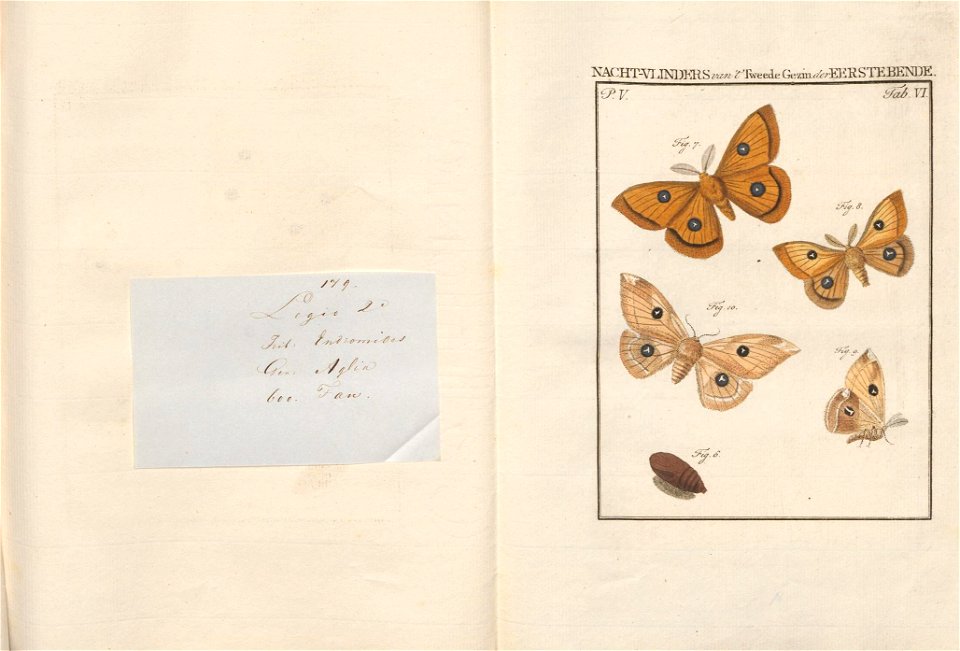 179.
Legio 2ª
Trib: Endromides
Gen: Aglia
600. Tau.
NACHT-VLINDERS van 't Tweede Gezin der EERSTE BENDE.
P. V.
Tab. VI.
Fig. 7.
Fig. 8.
Fig. 10.
Fig. 9.
Fig. 6.